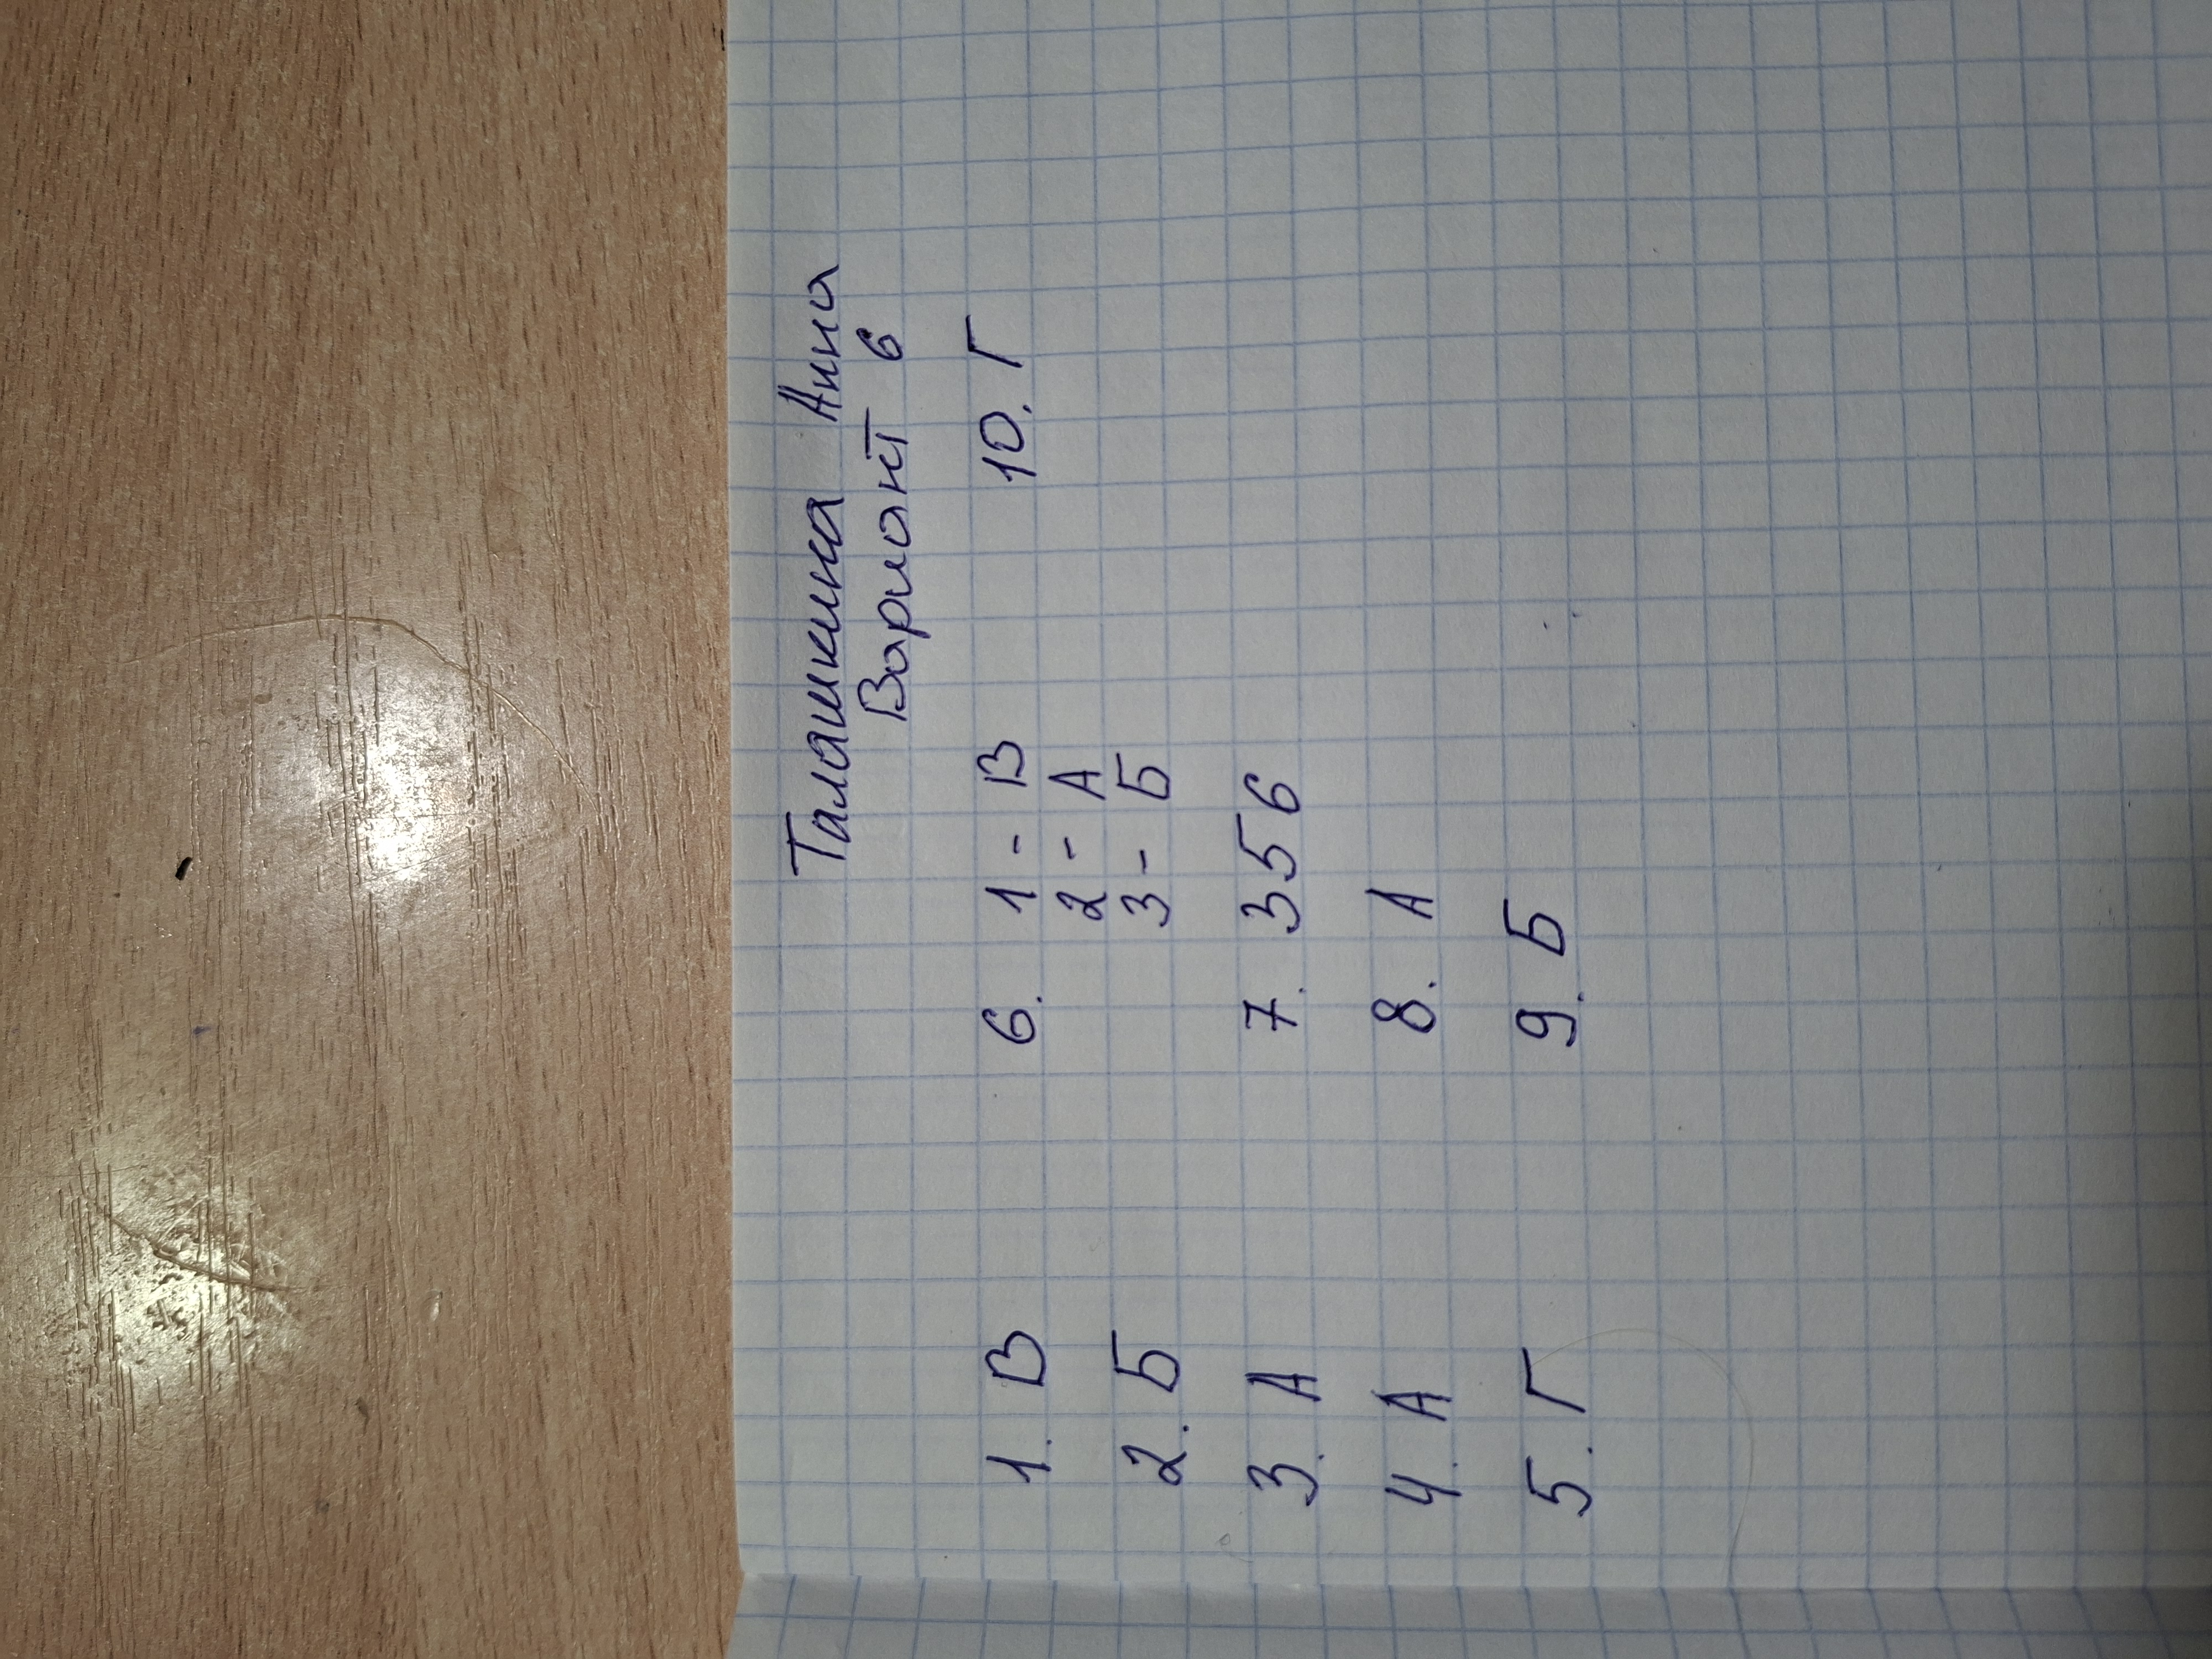 Талашкина Анна
Вариант 6
1. В
2. Б
3. А
4. А
5. Г
6. 1 - В
2 - А
3 - Б
7. 356
8. А
9. Б
10. Г